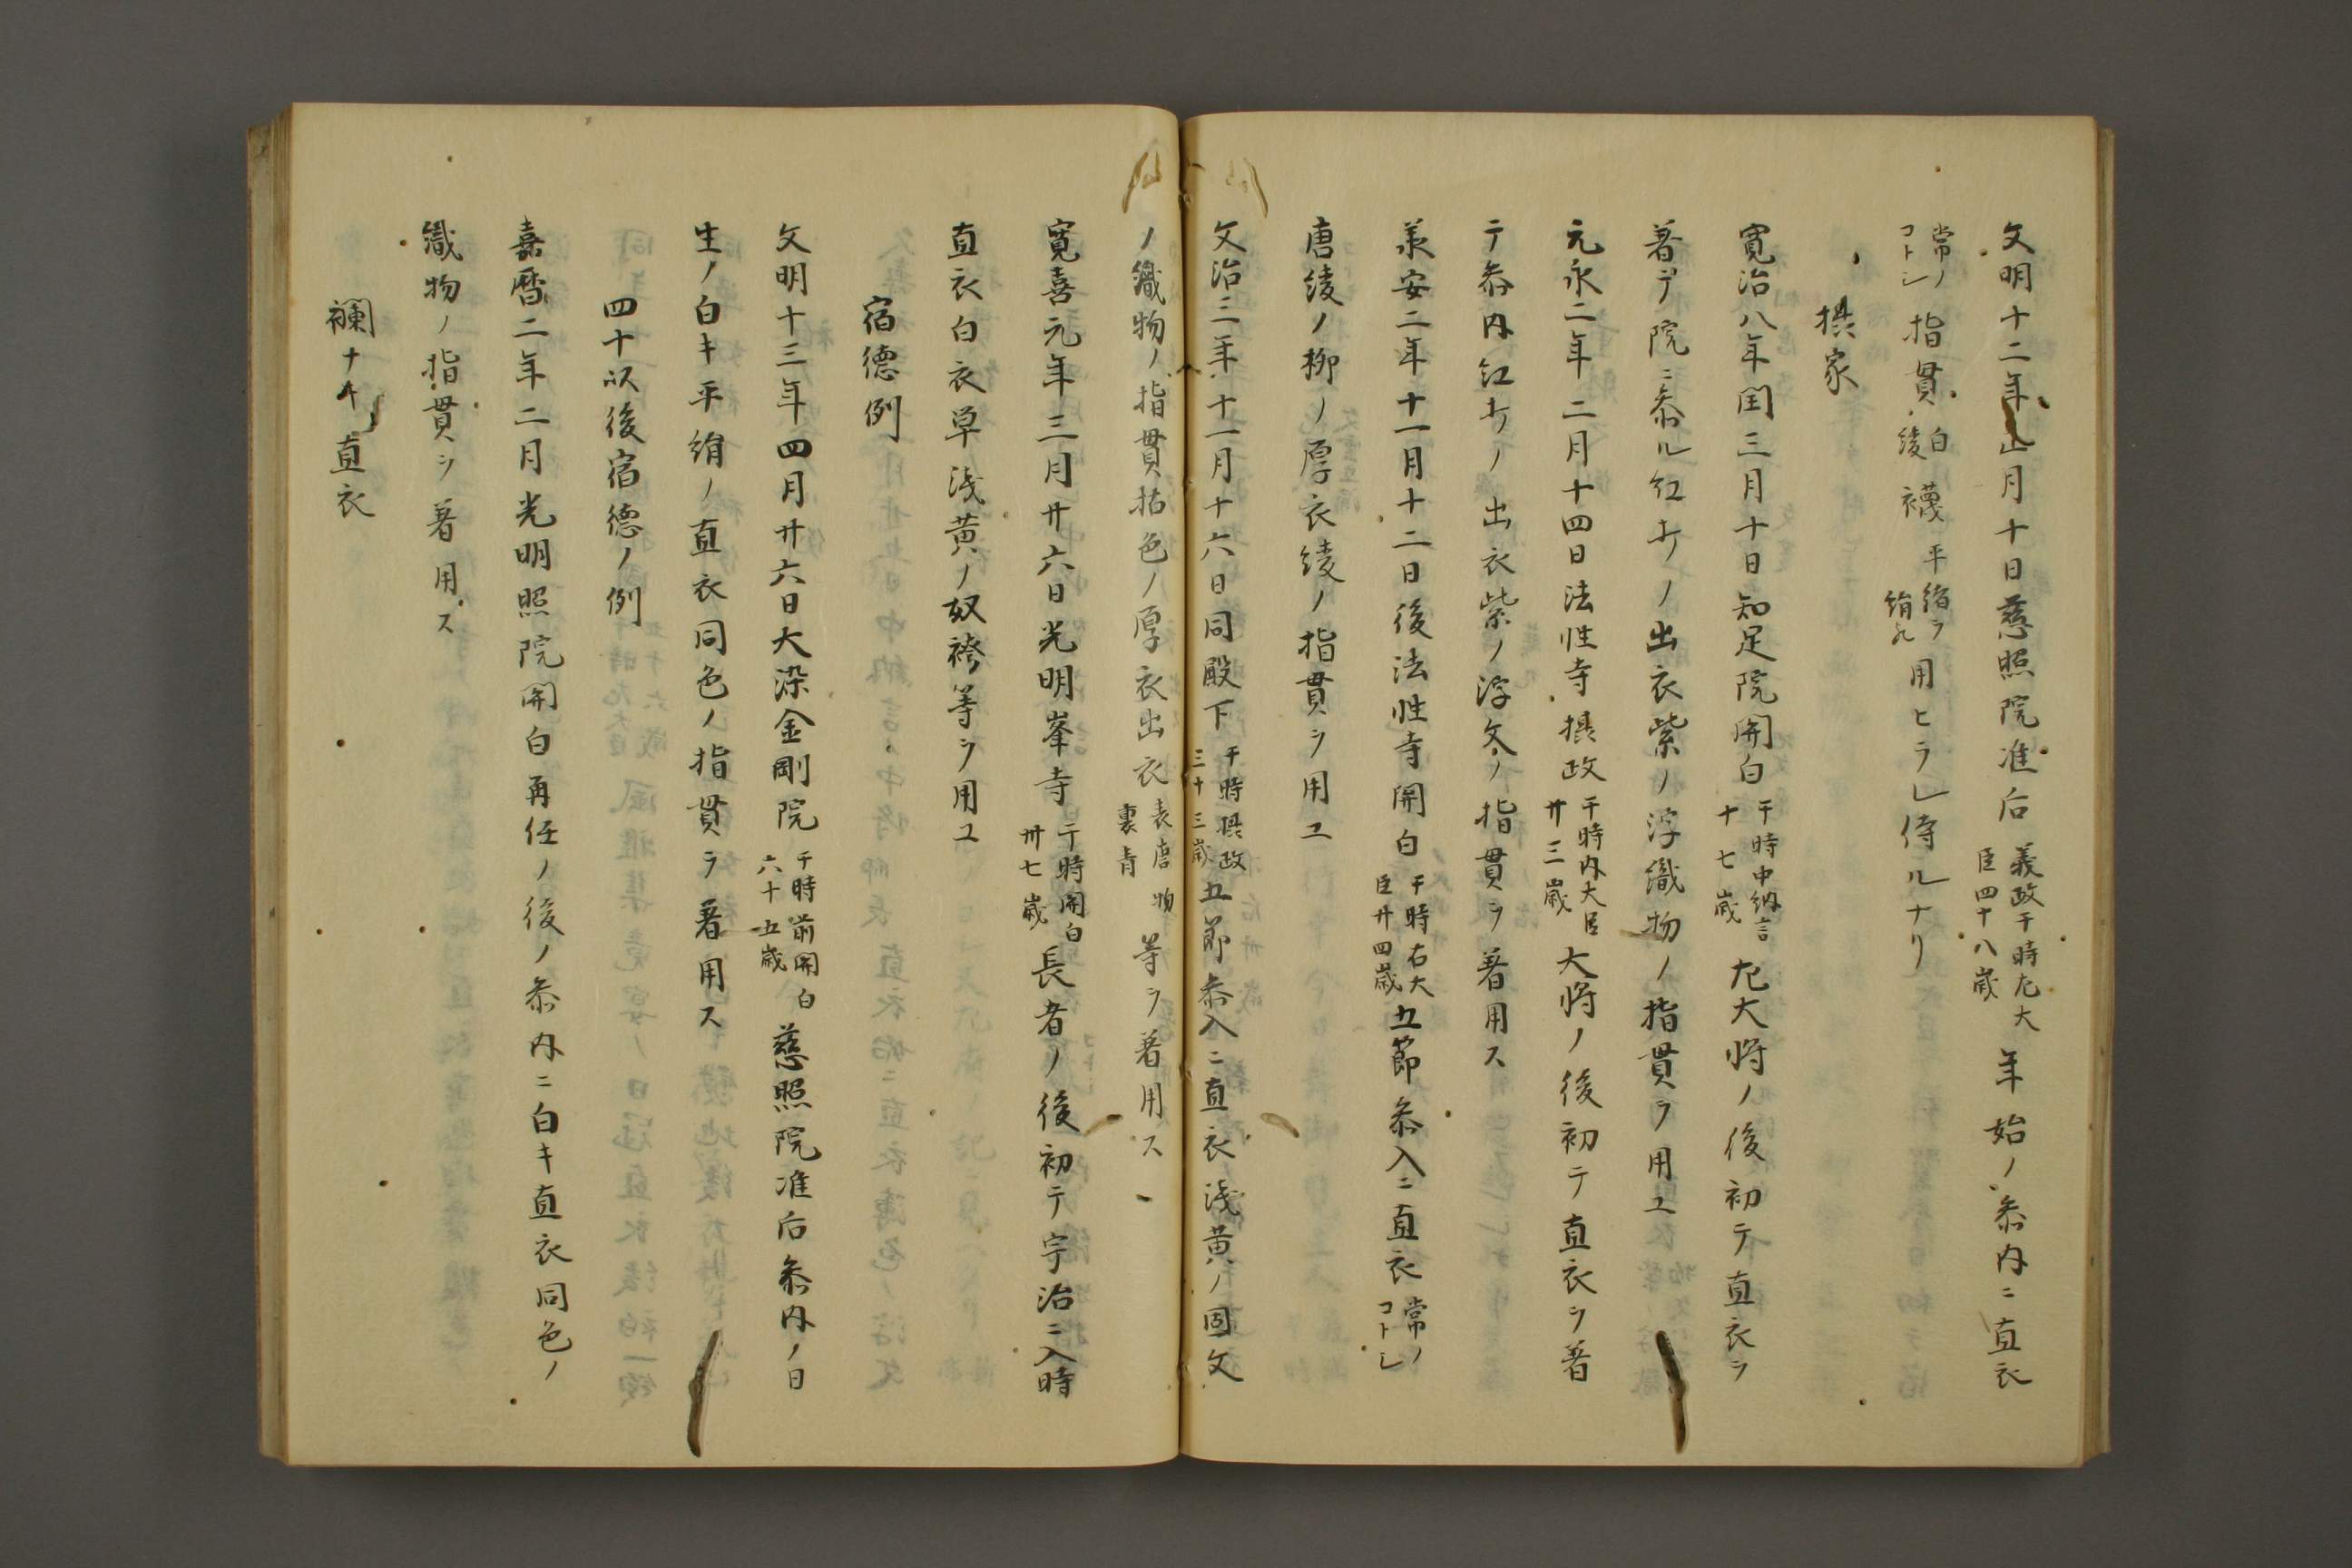 文明十二年正月十日慈照院准后義政于時左大臣四十八歳年始ノ参内ニ直衣
常ノコトシ指貫白綾襪平絹ラ絹用ヒラレ侍ルナリ
摂家
寛治八年閏三月十日知足院関白于時中納言十七歳左大将ノ後初テ直衣ヲ
著テ院ニ参ル紅打ノ出衣紫ノ浮織物ノ指貫ヲ用ユ
元永二年二月十四日法性寺摂政于時内大臣廿三歳大将ノ後初テ直衣ヲ著
テ参内紅打ノ出衣紫ノ浮文ノ指貫ヲ著用ス
承安二年十一月十二日後法性寺関白于時右大臣廿四歳五節参入ニ直衣常ノコトシ
唐綾ノ柳ノ厚衣綾ノ指貫ヲ用ユ
文治三年十一月十六日同殿下于時摂政三十三歳五節参入ニ直衣浅黄ノ固文
ノ織物ノ指貫枯色ノ厚衣出衣表唐物裏青等ヲ著用ス
寛喜元年三月廿六日光明峯寺于時関白卅七歳長者ノ後初テ宇治ニ入時
直衣白衣単浅黄ノ奴袴等ヲ用ユ
宿徳例
文明十三年四月廿六日大染金剛院于時前関白六十五歳慈照院准后参内ノ日
生ノ白キ平絹ノ直衣同色ノ指貫ヲ著用ス
四十以後宿徳ノ例
嘉暦二年二月光明照院関白再任ノ後ノ参内ニ白キ直衣同色ノ
織物ノ指貫ヲ著用ス
襴ナキ直衣